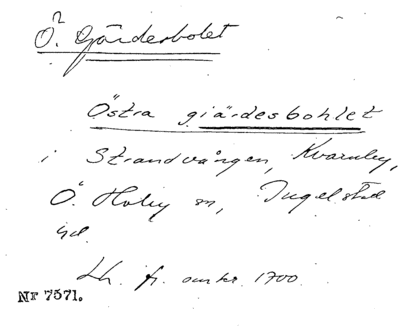 Ö. Gärdesbolet
Östra giärdesbohlet
i Strandvången, Kvarnby,
Ö. Hoby sn, Ingelstad
hd.
Lh. fr. omkr. 1700.
Nr 7571.